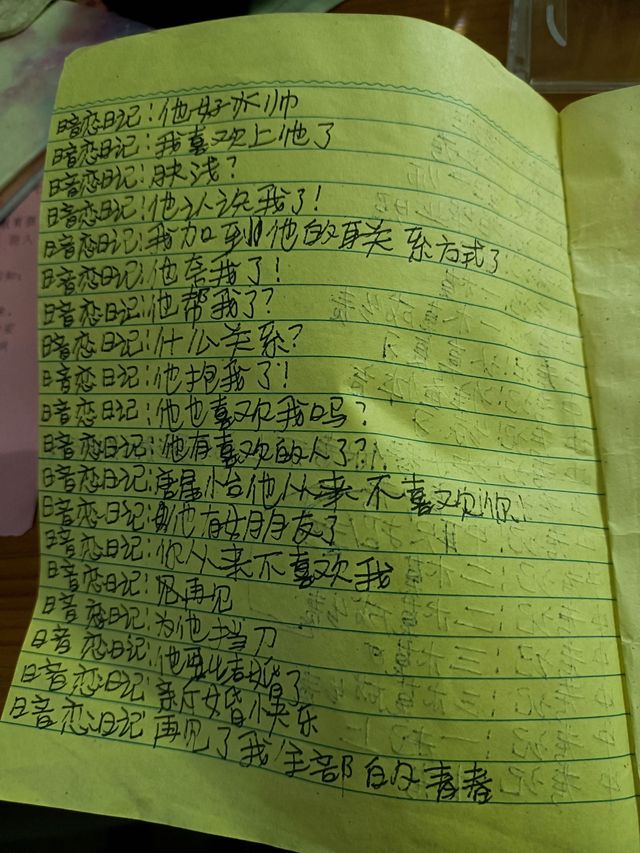 暗恋日记:他好帅
暗恋日记:我喜欢上他了
暗恋日记:肤浅?
暗恋日记:他认识我了!
暗恋日记:我加到他的联系方式了
暗恋日记:他亲我了!
暗恋日记:他帮我了?
暗恋日记:什么关系?
暗恋日记:他抱我了!
暗恋日记:他也喜欢我吗?
暗恋日记:他有喜欢的人了?!
暗恋日记:唐星怡他从来不喜欢你!
暗恋日记:他有女朋友了
暗恋日记:你从来不喜欢我
暗恋日记:再见
暗恋日记:为他挡刀
暗恋日记:他要结婚了
暗恋日记:新婚快乐
暗恋日记 再见了我全部的青春